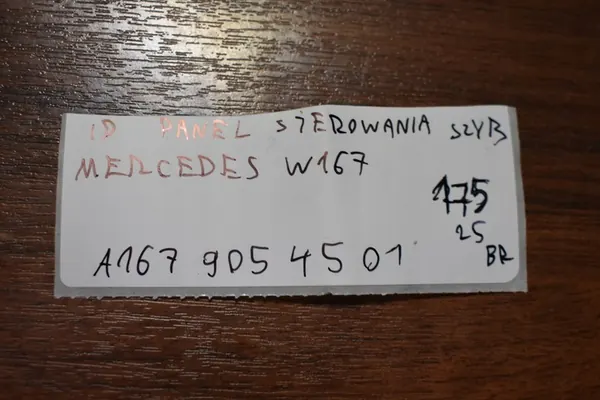 ID PANEL STEROWANIA SZYB
MERCEDES W167
175
25
BR
A167 905 45 01